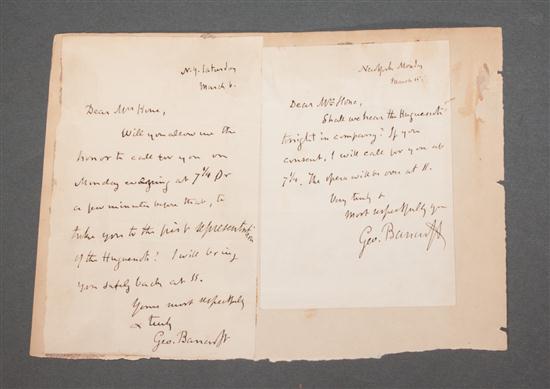 N.Y. Saturday
March 6.
Dear Mrs Hone,
Will you allow me the
honor to call for you on
Monday evening at 7¼ or
a few minutes before that, to
take you to the first representation
of the Huguenots? I will bring
you safely back at 11.
Yours most respectfully
& truly
Geo. Bancroft
New York Monday
March 15.
Dear Mrs Hone,
Shall we hear the Huguenots
tonight in company? If you
consent, I will call for you at
7¼. The opera will be over at 11.
Very truly &
most respectfully yrs
Geo. Bancroft